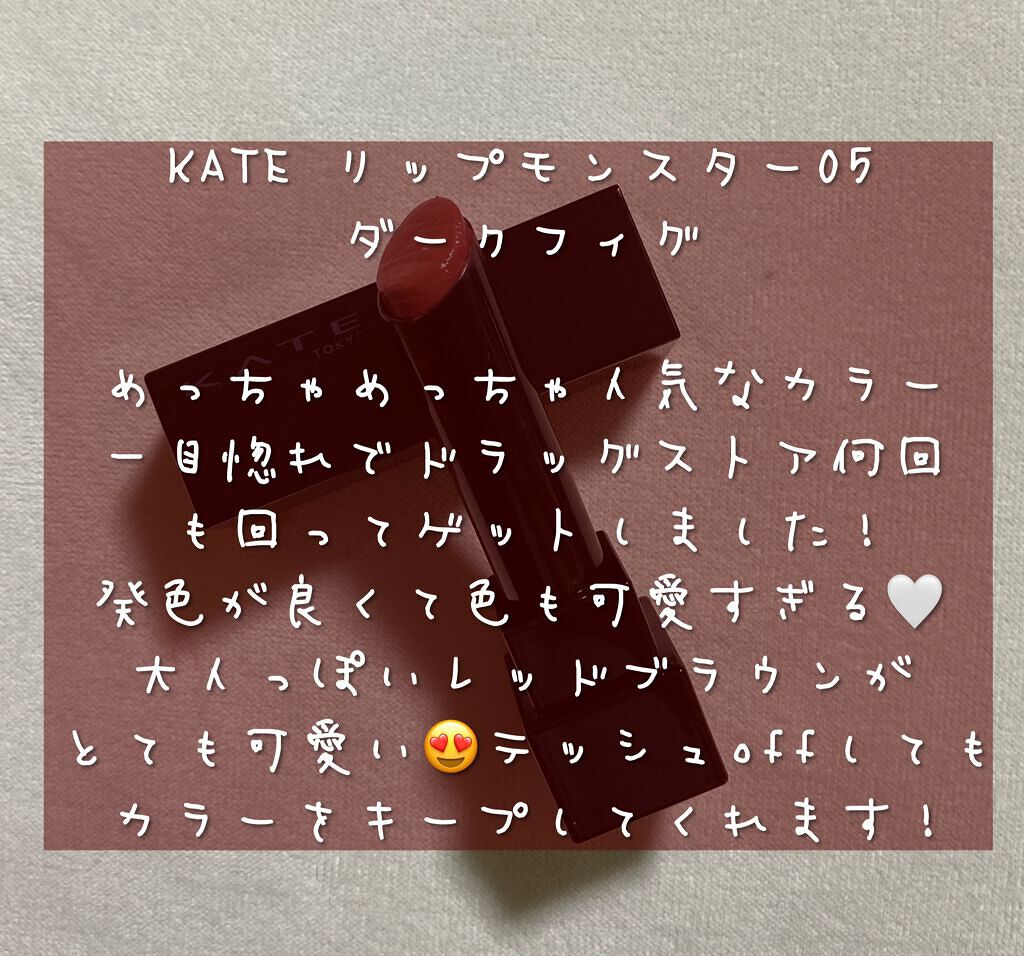 KATE リップモンスター05
ダークフィグ
KATE
TOKYO
めっちゃめっちゃ人気なカラー
一目惚れでドラッグストア何回
も回ってゲットしました！
発色が良くて色も可愛すぎる🤍
大人っぽいレッドブラウンが
とても可愛い😍テッシュoffしても
カラーをキープしてくれます！